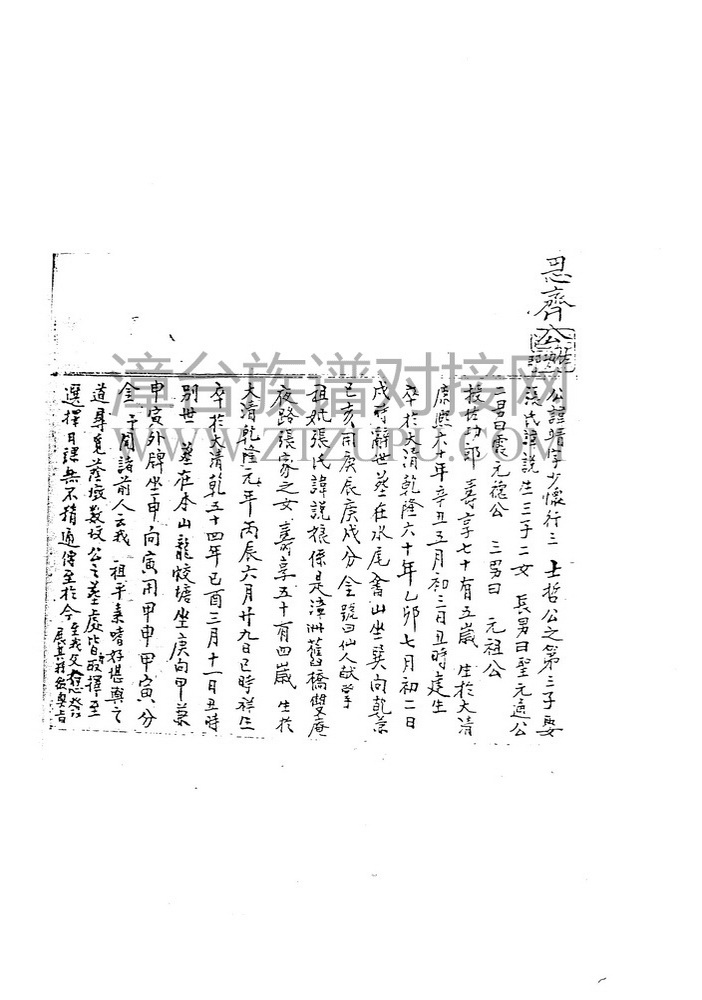 思齊公
公諱晴字少懷行三 士哲公之第三子娶
張氏諱說生三子二女 長男曰聖元通公
二男曰震元德公 三男曰 元祖公
授佐功郎 壽享七十有五歲 生於大清
康熙六十年辛丑五月初三日丑時建生
卒於大清乾隆六十年乙卯七月初二日
戌時辭世墓在水尾畬山坐巽向乾兼
己亥用庚辰庚戌分金號曰仙人獻掌
祖妣張氏諱說娘係是漳洲舊橋雙庵
夜路張家之女 壽享五十有四歲 生於
大清乾隆元年丙辰六月廿九日巳時祥生
卒於大清乾五十四年己酉三月十一日丑時
別世 墓在本山龍蛟塘坐庚向甲兼
申寅外牌坐申向寅用甲申甲寅分
金 予聞諸前人云我 祖平素嗜好堪輿之
道尋覓蔭墳數坟公之墓處皆 擇至
選擇日課無不精通傳至於今至我父
展其
漳台族谱对接网
WWW.ZTZUPU.COM